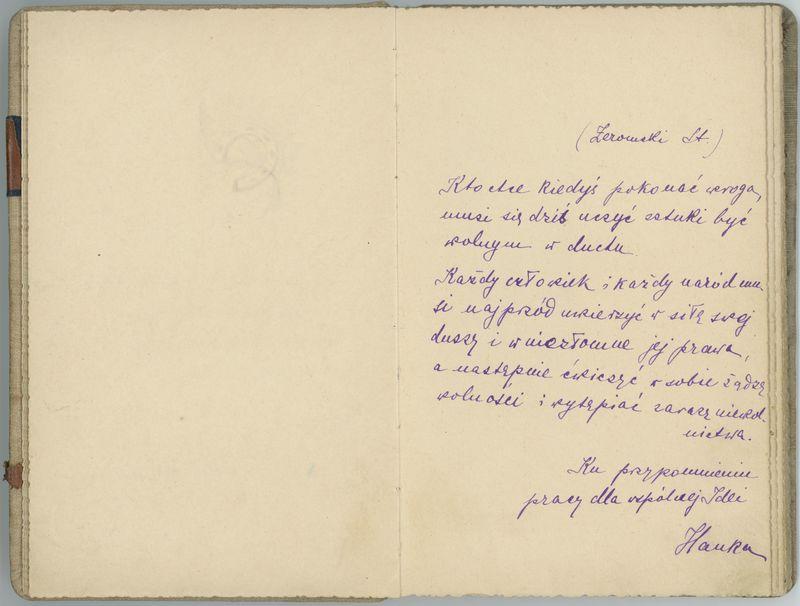 (Żeromski St.)
Kto chce kiedyś pokonać wroga,
musi się dziś uczyć sztuki być
wolnym w duchu.
Każdy człowiek i każdy naród mu-
si najprzód uwierzyć w siłę swej
duszy i w niezłomne jej prawa,
a następnie ćwiczyć w sobie żądzę
wolności i wytępiać zarazę niewol-
nictwa.
Ku przypomnieniu
pracy dla wspólnej Idei
Hanka